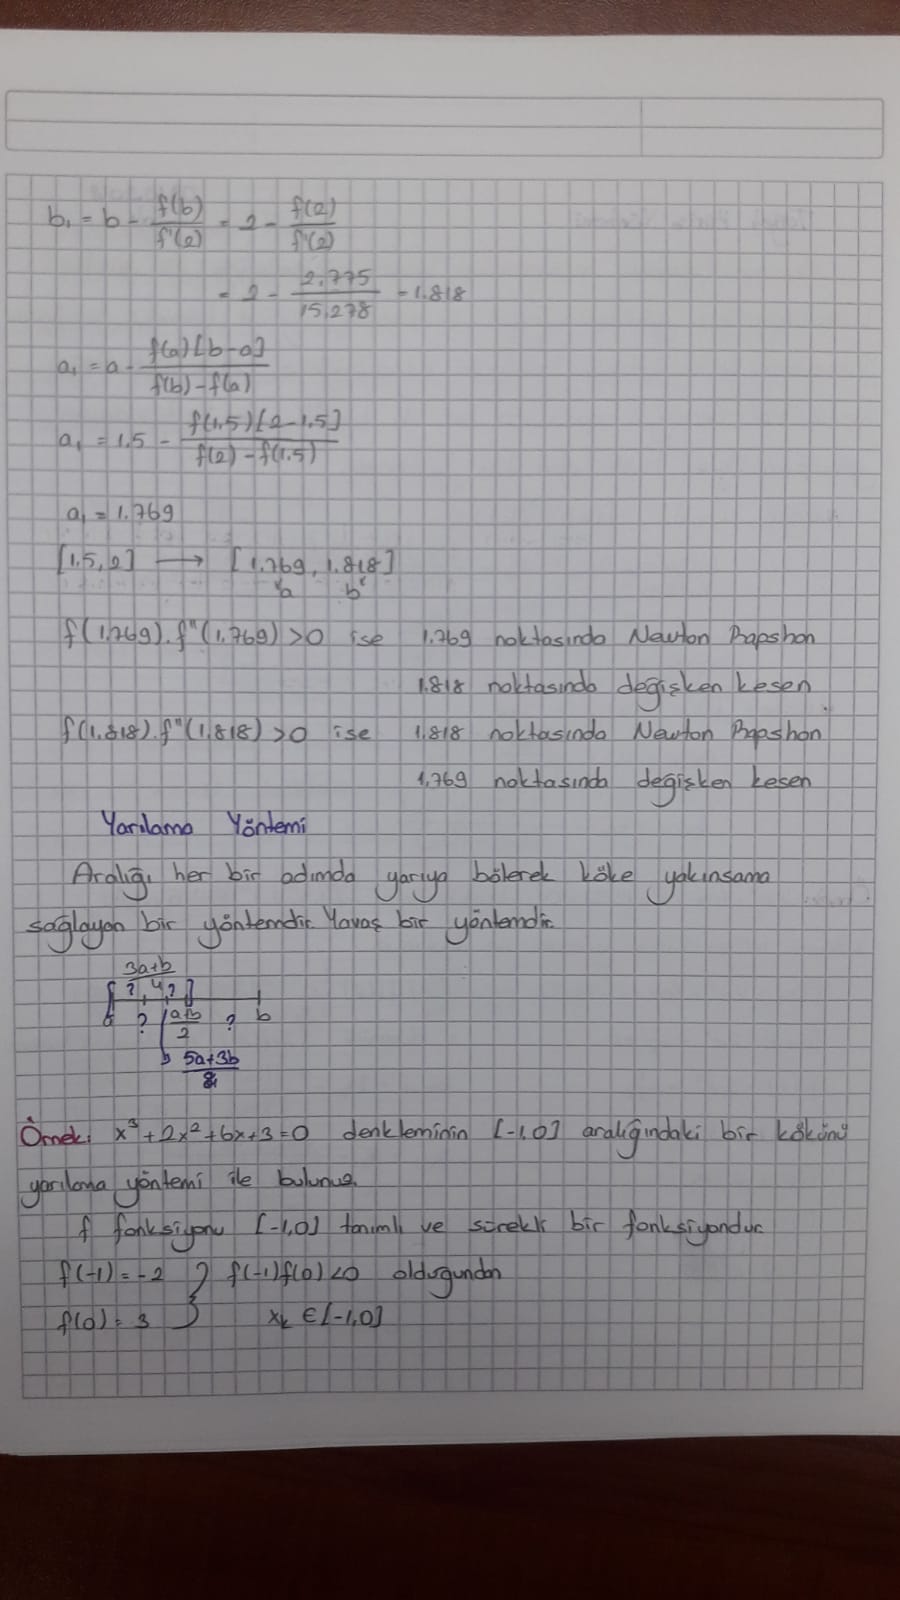 b₁ = b - f(b)/f'(2) = 2 - f(2)/f'(2)
= 2 - 2,775/15,278 = 1.818
a₁ = a - f(a)[b-a]/f(b)-f(a)
a₁ = 1.5 - f(1,5)[2-1,5]/f(2)-f(1.5)
a₁ = 1.769
[1.5, 2] → [1.769, 1.818]
a b
f(1.769).f"(1.769)>0 ise 1.769 noktasında Newton Rapshon
1.818 noktasında değişken kesen
f(1.818).f"(1.818)>0 ise 1.818 noktasında Newton Rapshon
1,769 noktasında değişken kesen
Yarılama Yöntemi
Aralığı her bir adımda yarıya bölerek köke yakınsama
sağlayan bir yöntemdir. Yavaş bir yöntemdir.
3a+b
? 4 ?
a ? a+b/2 ? b
5a+3b/8
Örnek: x³+2x²+6x+3=0 denkleminin [-1,0] aralığındaki bir kökünü
yarılama yöntemi ile bulunuz.
f fonksiyonu [-1,0] tanımlı ve sürekli bir fonksiyondur.
f(-1) = -2 } f(-1)f(0)<0 olduğundan
f(0) = 3 xₖ ∈ [-1,0]